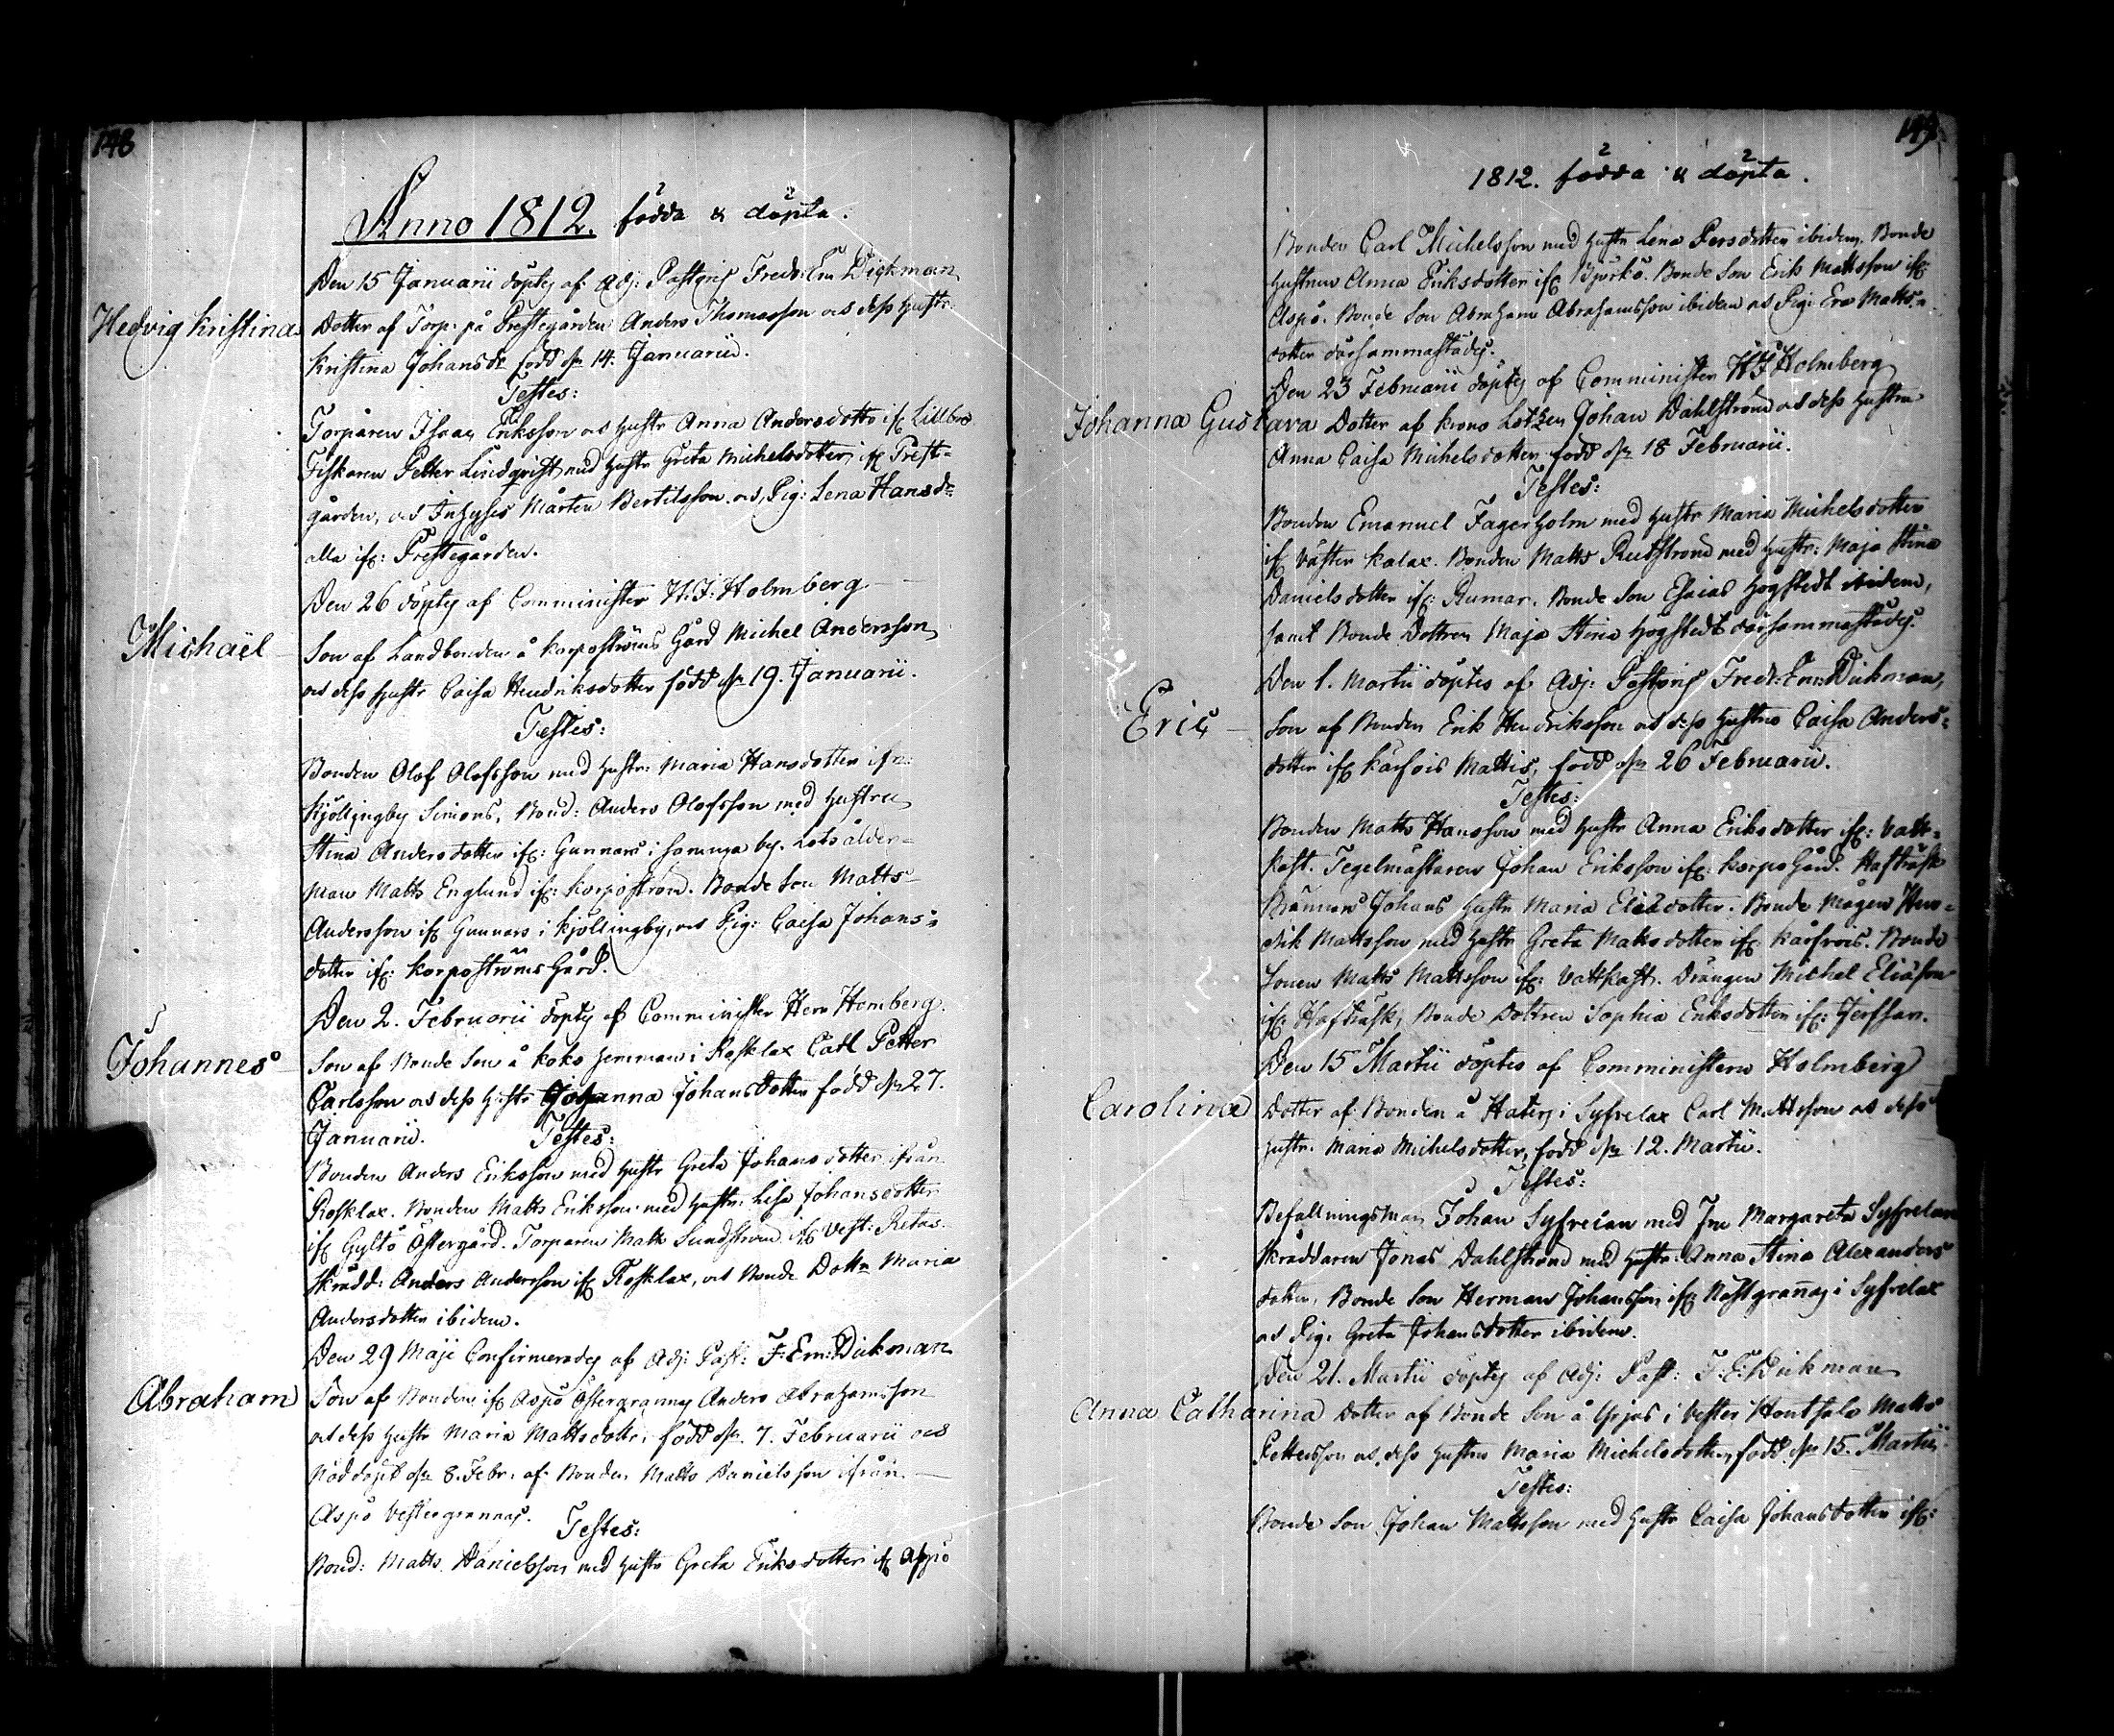 148
Anno 1812. födda & döpta.
Den 15 Januarii döptes af Adj: Pastoris Fredr: Em Dickman
Hedvig Kristina
Dotter af Torp: på Prestegården Anders Thomasson och dess hustr:
Kristina Johansdr född dn 14. Januarii.
Testes:
Torparen Isaac Eriksson och hustr Anna Andersdotte if. Lillbro
Fiskaren Petter Lindqvist med hustr Greta Michelsdotter, if. Prest-
gården, och Inhyses Mårten Bertilsson och Pig: Lena Hansdr
alla if: Prestegården.
Den 26 döptes af Comminister H: J: Holmberg
Michaël
Son af Landbonden å Korpoströms Gård Michel Andersson
och dess hustr Caisa Hendriksdotter född dn 19. Januarii.
Testes:
Bonden Olof Olofsson med hustr: Maria Hansdotter ifn:
Kjöllingby Simons, Bond: Anders Olofsson med hustru
Stina Andersdotter if: Gunnars i samma by. Lots ålder-
man Matts Englund if: Korpoström. Bonde Son Matts
Andersson if Gunnars i Kjöllingby, och Pig: Caisa Johans-
dotter if: Korpoströms Gård.
Den 2. Februarii döptes af Comminister Herr Homberg.
Johannes
Son af Bonde Son å Koks hemman i Rosklax Carl Petter
Carlsson och dess hustr Johanna Johansdotter född dn 27.
Januarii. Testes:
Bonden Anders Eriksson med hustr Greta Johansdotter ifrån
Rosklax. Bonden Matts Eriksson med hustr: Lisa Johansdotter
if Gyltö Östergård. Torparen Matts Sundström if Vest: Retas.
Skrädd: Anders Andersson if Rosklax, och Bonde Dottr Maria
Andersdotter ibidem.
Den 29 Maji Confirmerades af Adj: Past: F: Em: Dickman
Abraham
Son af Bonden if Aspö Östergrannas Anders Abrahamsson
och dess hustr Maria Mattsdotter. född dn. 7. Februarii och
Nöddöpt dn 8. Febr. af Bonden Matts Danielsson ifrån
Aspö Vestergrannas. Testes:
Bond: Matts Danielsson med hustr Greta Eriksdotter if Aspö
149
1812. födda & döpta.
Bonden Carl Michelsson med hustr Lena Persdotter ibidem. Bonde
hustrun Anna Eriksdotter if Björkö. Bonde Son Erik Mattsson if:
Aspö. Bonde Son Abraham Abrahamsson ibidem och Pig: Eva Matts-
dotter därsammastädes.
Den 23 Februarii döptes af Comminister H J Holmberg
Johanna Gustava Dotter af Krono Lotsen Johan Dahlström och dess hustru
Anna Caisa Michelsdotter född dn 18 Februarii.
Testes:
Bonden Emanuel Fagerholm med hustr Maria Michelsdotter
if Väster Kalax. Bonden Matts Rutström med hustr: Maja Stina
Danielsdotter if: Rumar. Bonde Son Esaias Högstedt ibidem,
samt Bonde Dottren Maja Stina Högstedt därsammastädes.
Den 1. Martii döptes af Adj: Pastoris Fredr: Em: Dickman,
Eric
Son af Bonden Erik Hendriksson och dess hustru Caisa Anders-
dotter if Kårfois Mattis, född dn 26 Februarii.
Testes:
Bonden Matts Hansson med hustr Anna Eriksdotter if: Vatt-
kast. Tegelmästaren Johan Eriksson if: Korpo Gård. Hafträsk
Brännars Johans hustr Maria Eliædotter. Bonde Mågen Hen-
drik Mattsson med hustr Greta Mattsdotter if: Kårfvois. Bonde
Sonen Matts Mattsson if: Vattkast. Drängen Michel Eliæson
if Hafträsk, Bonde Dottren Sophia Eriksdotter if: Jerfsan.
Den 15 Martii döptes af Comministern Holmberg
Carolina
Dotter af Bonden å Haters i Syfrelax Carl Mattsson och dess
hustr. Maria Michelsdotter, född dn 12. Martii.
Testes:
Befallningsman Johan Syfreian med Fru Margareta
Skräddaren Jonas Dahlström med hustr: Anna Stina Alexanders
dotter, Bonde Son Herman Johansson if: i Syfrelax
och Pig: Greta Johansdotter ibidem.
Den 21. Martii döptes af Adj: Past: F: E: Dickman
Anna Catharina Dotter af Bonde Son å Yrjas i Vester Hontsala Matts
Pettersson och dess hustru Maria Michelsdotter, född dn 15. Martii.
Testes:
Bonde Son Johan Mattsson med hustr Caisa Johansdotter if: